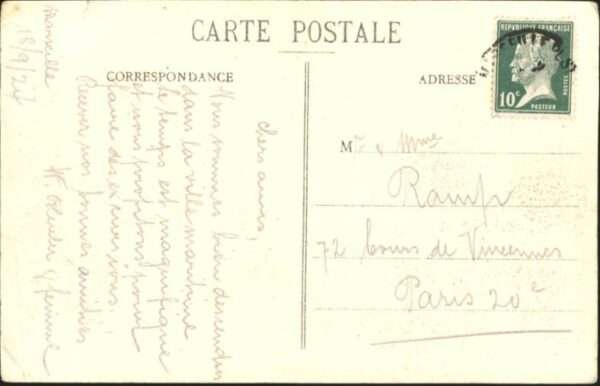 CARTE POSTALE
CORRESPONDANCE
ADRESSE
REPUBLIQUE FRANÇAISE
10c
POSTES
PASTEUR
Marseille
18/9/24
Chers amis,
Nous sommes bien descendus
dans la ville maritime
le temps est magnifique
et nous profitons pour
faire des excursions.
Recevez nos bonnes amitiés
Mr & Mme
Ramp
72 Cours de Vincennes
Paris 20e